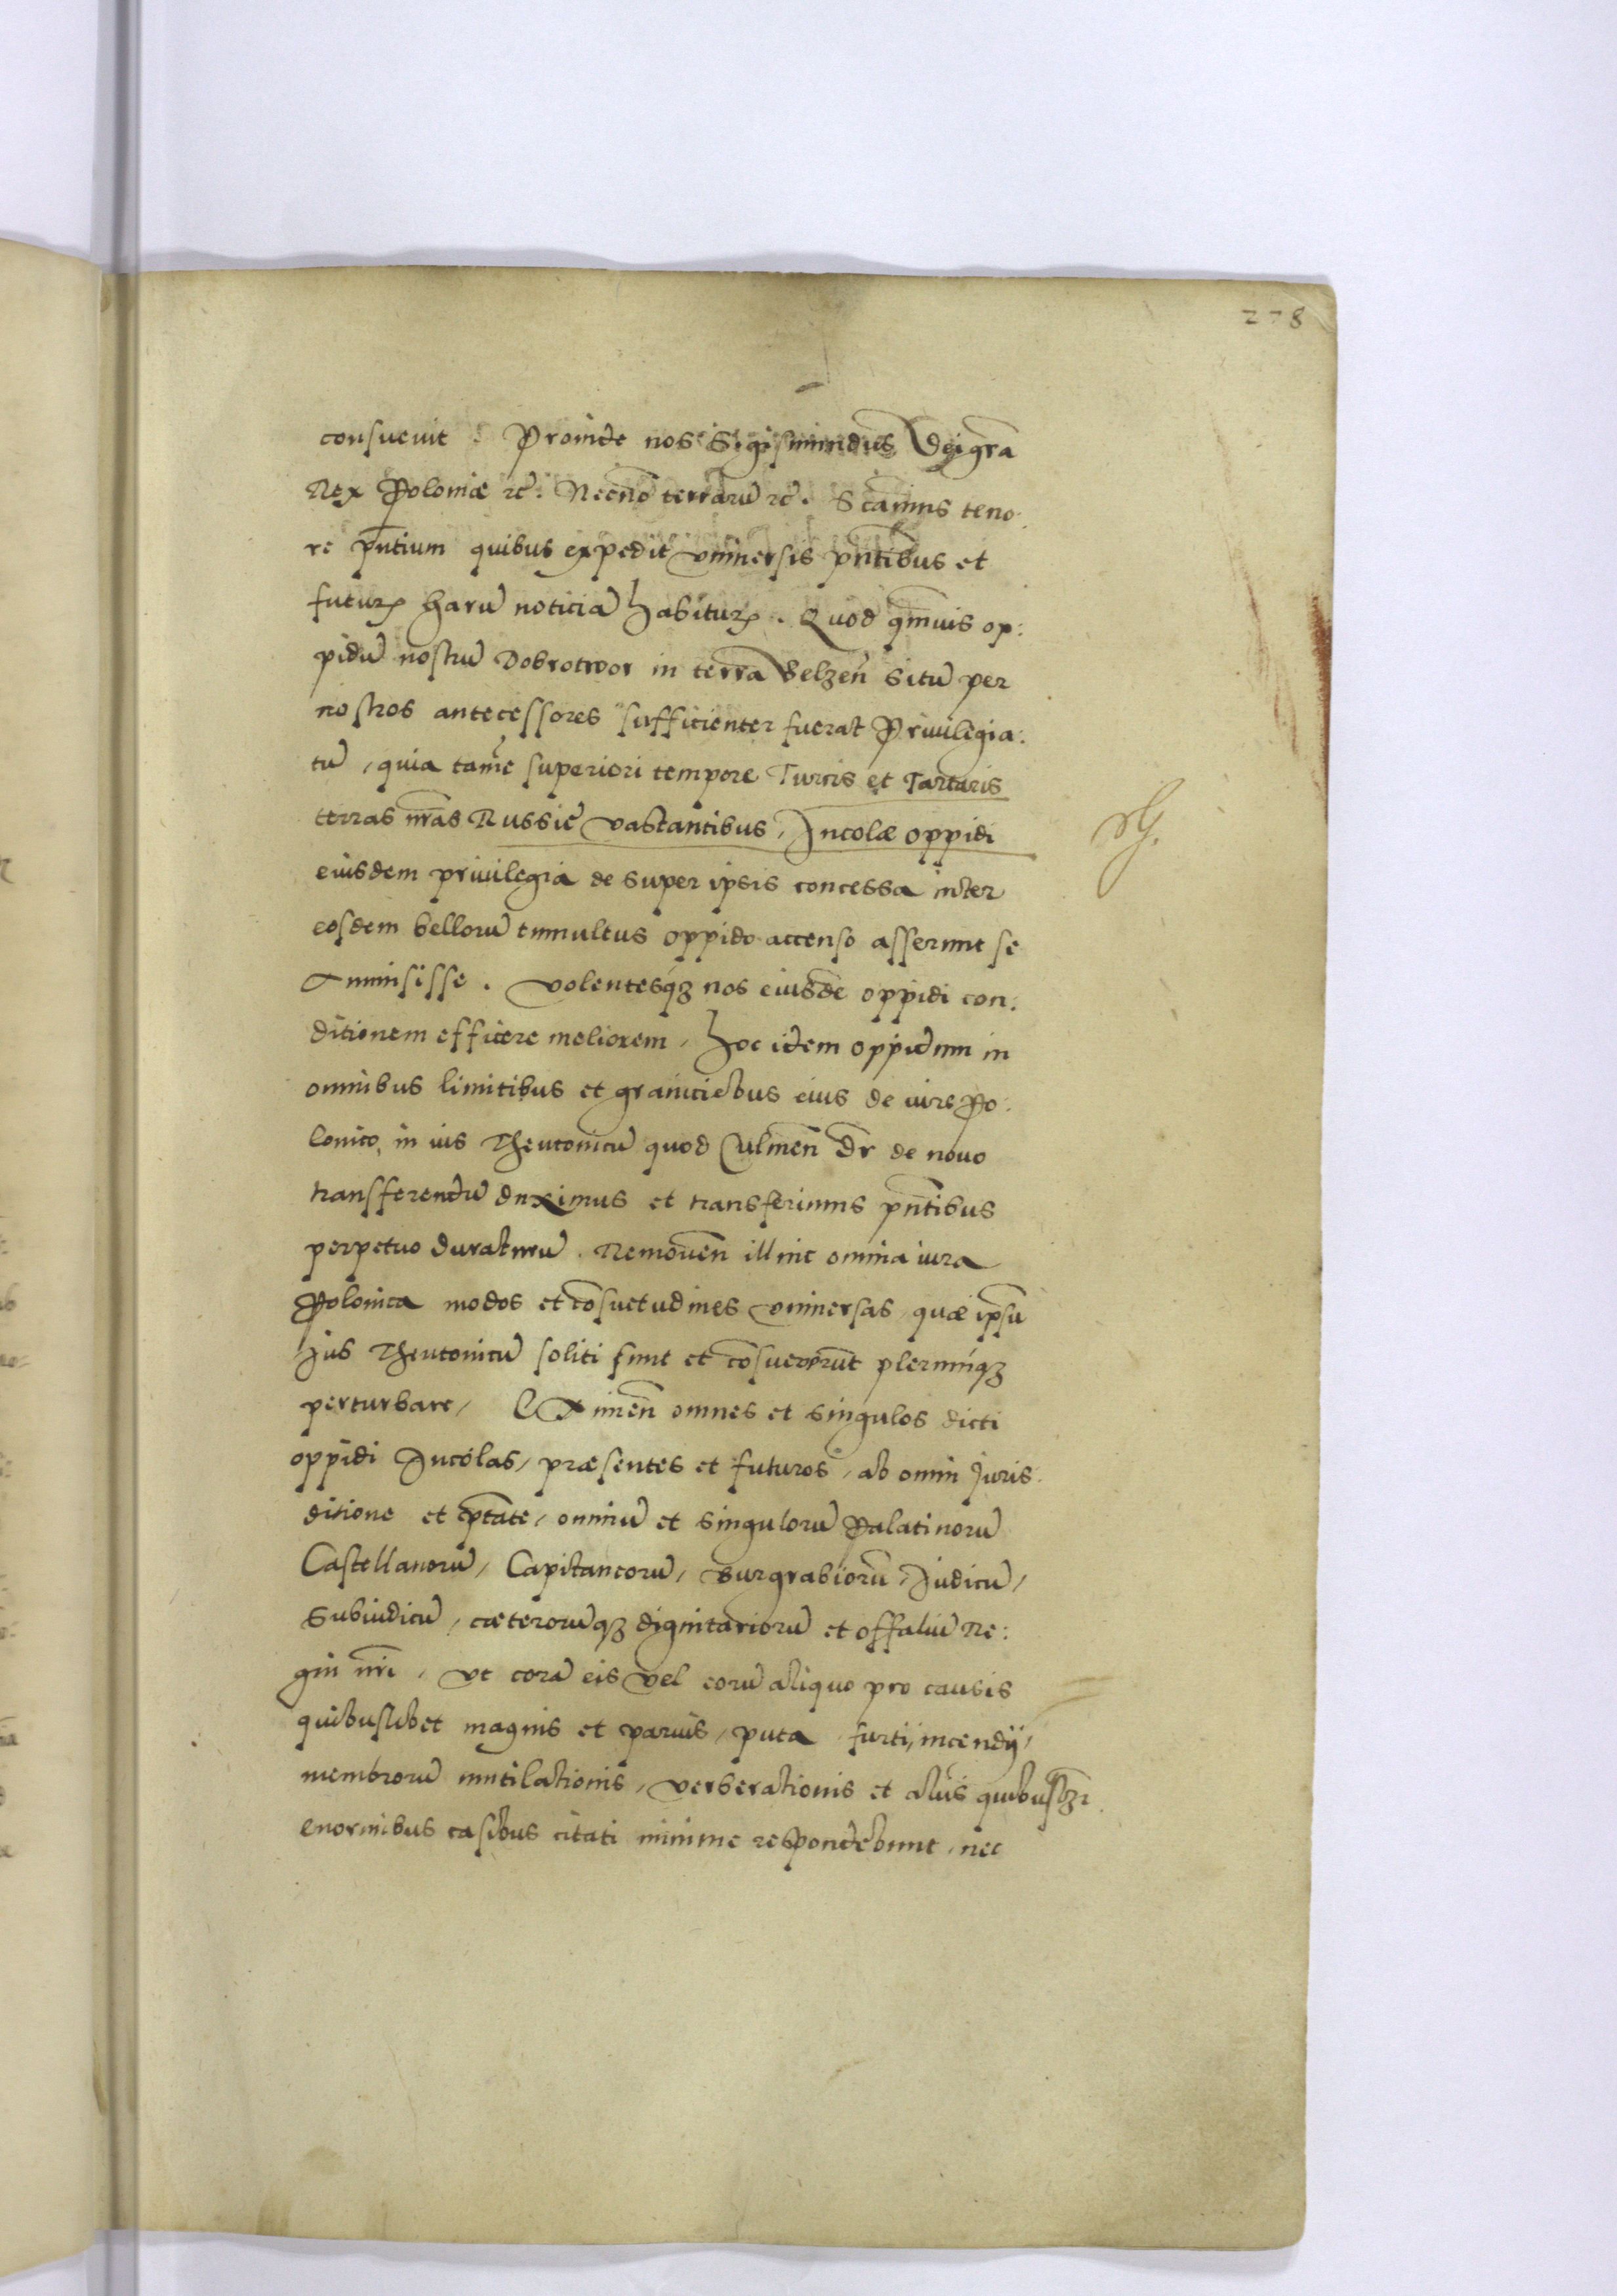 278
consuevit. Proinde nos Sigismundus Dei gra͠
Rex Poloniæ ꝛc̃. Necno͠ terraru͠ ꝛc̃. S cam͠us teno.
re pn͠tium quibus expedit vniuersis pn͠tibus et
futurꝭ haru͠ noticia͠ habiturꝭ. Quod qm͠uis op:
pidu͠ nostru͠ Dobrotwor in terra Belzen͠ situ͠ per
nostros antecessores sufficienter fuerat Priuilegia:
tu͠, quia tame͠ superiori tempore Turcis et Tartaris
terras nr͠as Russie vastantibus, Incolæ oppidi
eiusdem priuilegia de super ipsis concessa inter
eosdem belloru͠ tumultus oppido accenso asserunt se
Amisisse. volentesqꝫ nos eiusde͠ oppidi con:
ditionem efficere meliorem, hoc idem oppidum in
omnibus limitibus et graniciebus eius de iure Po:
lonico, in ius Theutonicu͠ quod Culmen͠ dr͠ de nouo
transferendu͠ duximus et transferimus pn͠tibus
perpetuo duraturu͠. Remouen͠ illinc omnia iura
Polonica modos et co͠suetudines vniuersas, quæ ipsu͠
Ius Theutonicu͠ soliti sunt et co͠sueueru͠t plerunqꝫ
perturbare, Eximen͠ omnes et singulos dicti
oppidi Incolas, præsentes et futuros, ab omni Juris.
ditione et ptãte, omniu͠ et singuloru͠ Palatinoru͠
Castellanoru͠, Capitaneoru͠, Burgrabioru͠, Judicu͠,
Subiudicu͠, cæteroru͠qꝫ dignitarioru͠ et offaliu͠ Re:
gni nr͠i, vt cora͠ eis vel eoru͠ aliquo pro causis
quibuslibet magnis et paruis, puta furti, incendij,
membroru͠ mutilationis, verberationis et alijs quibusꝫ
enormibus casibus citati minime respondebunt, nec